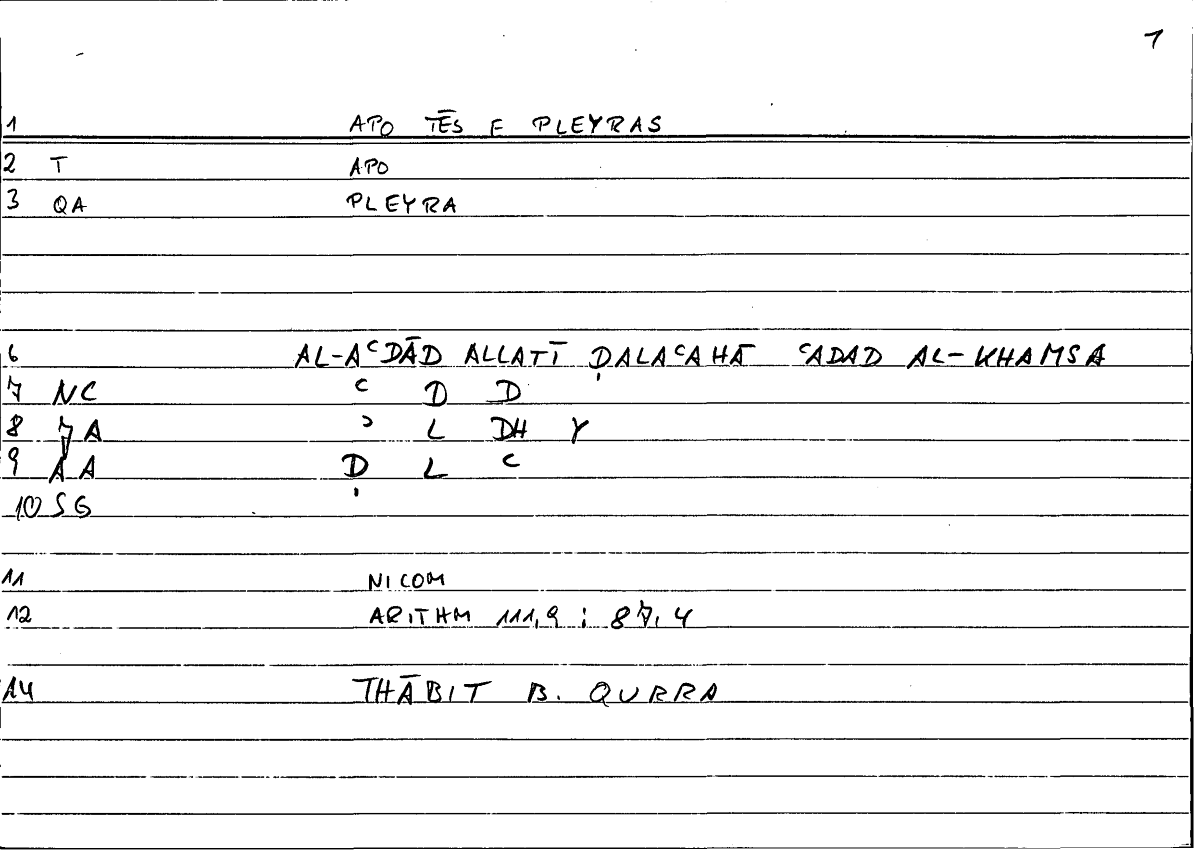 1
1 APO TĒS E PLEYRAS
2 T APO
3 QA PLEYRA
6 AL-AʿDĀD ALLATĪ ḌALAʿAHĀ ʿADAD AL-KHAMSA
7 NC ʿ D D
8 7A ʾ L DH Y
9 AA Ḍ L ʿ
10 SG
11 NICOM
12 ARITHM 111,9 ; 87,4
14 THĀBIT B. QURRA